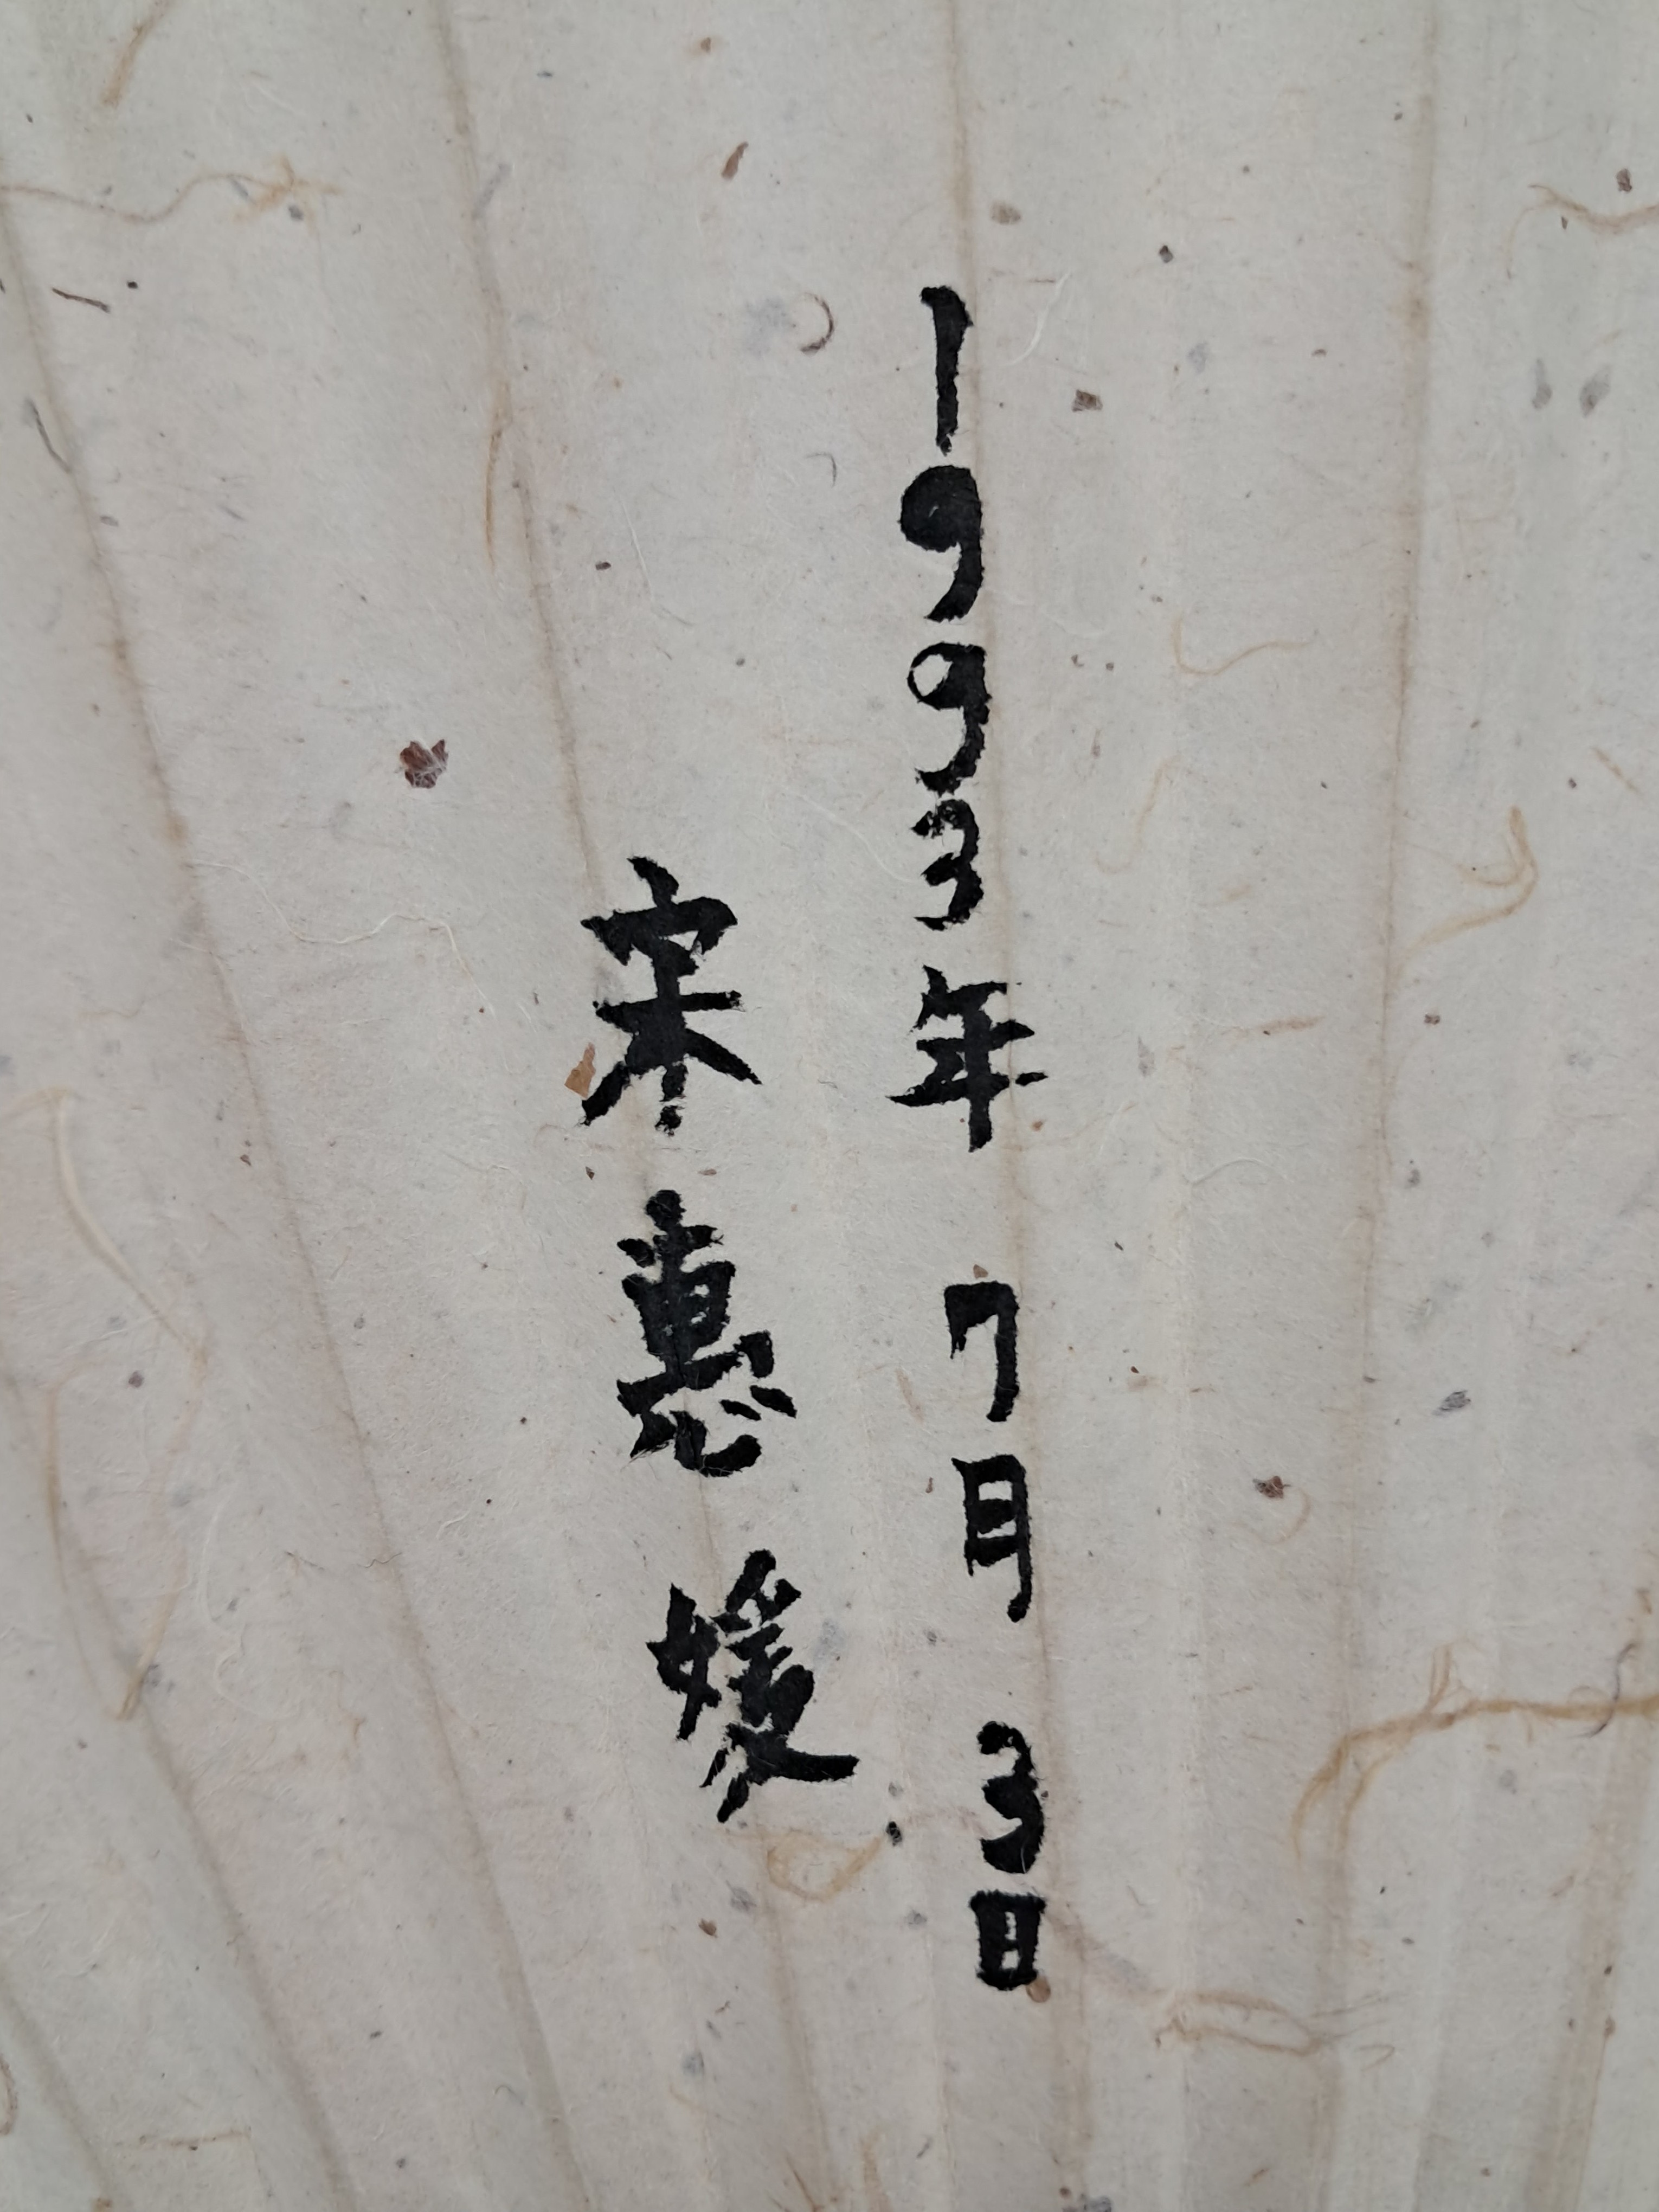 1993年 7月 3日
宋惠媛